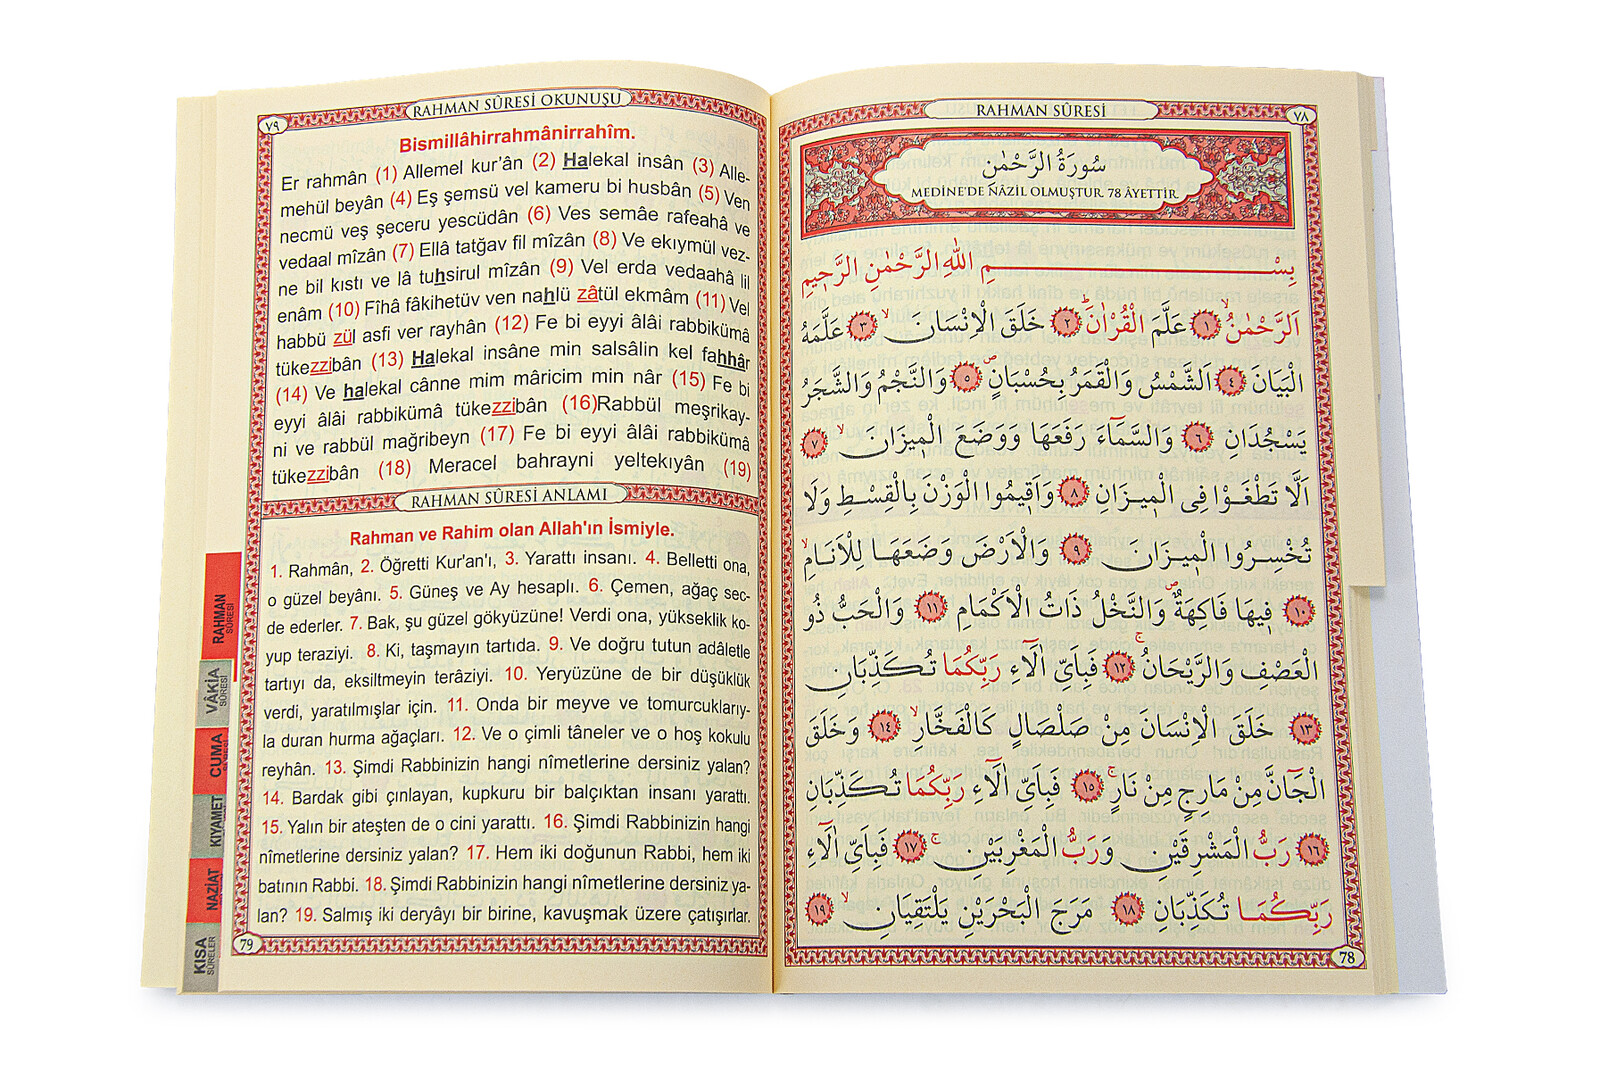 RAHMAN SÛRESİ
٧٨
سُورَةُ الرَّحْمٰنِ
MEDİNE'DE NÂZİL OLMUŞTUR. 78 ÂYETTİR
بِسْمِ اللّٰهِ الرَّحْمٰنِ الرَّحٖيمِ
اَلرَّحْمٰنُۙ ١ عَلَّمَ الْقُرْاٰنَۜ ٢ خَلَقَ الْاِنْسَانَۙ ٣ عَلَّمَهُ
الْبَيَانَ ٤ اَلشَّمْسُ وَالْقَمَرُ بِحُسْبَانٍۖ ٥ وَالنَّجْمُ وَالشَّجَرُ
يَسْجُدَانِ ٦ وَالسَّمَٓاءَ رَفَعَهَا وَوَضَعَ الْمٖيزَانَۙ ٧
اَلَّا تَطْغَوْا فِى الْمٖيزَانِ ٨ وَاَقٖيمُوا الْوَزْنَ بِالْقِسْطِ وَلَا
تُخْسِرُوا الْمٖيزَانَ ٩ وَالْاَرْضَ وَضَعَهَا لِلْاَنَامِۙ
١٠ فٖيهَا فَاكِهَةٌۖ وَالنَّخْلُ ذَاتُ الْاَكْمَامِ ١١ وَالْحَبُّ ذُو
الْعَصْفِ وَالرَّيْحَانُۚ ١٢ فَبِاَىِّ اٰلَٓاءِ رَبِّكُمَا تُكَذِّبَانِ
١٣ خَلَقَ الْاِنْسَانَ مِنْ صَلْصَالٍ كَالْفَخَّارِۙ ١٤ وَخَلَقَ
الْجَٓانَّ مِنْ مَارِجٍ مِنْ نَارٍۚ ١٥ فَبِاَىِّ اٰلَٓاءِ رَبِّكُمَا تُكَذِّبَانِ
١٦ رَبُّ الْمَشْرِقَيْنِ وَرَبُّ الْمَغْرِبَيْنِۚ ١٧ فَبِاَىِّ اٰلَٓاءِ
رَبِّكُمَا تُكَذِّبَانِ ١٨ مَرَجَ الْبَحْرَيْنِ يَلْتَقِيَانِۙ ١٩
78
RAHMAN SÛRESİ OKUNUŞU
٧٩
Bismillâhirrahmânirrahîm.
Er rahmân (1) Allemel kur'ân (2) Halekal insân (3) Alle-
mehül beyân (4) Eş şemsü vel kameru bi husbân (5) Ven
necmü veş şeceru yescüdân (6) Ves semâe rafeahâ ve
vedaal mîzân (7) Ellâ tatğav fil mîzân (8) Ve ekıymül vez-
ne bil kıstı ve lâ tuhsirul mîzân (9) Vel erda vedaahâ lil
enâm (10) Fîhâ fâkihetüv ven nahlü zâtül ekmâm (11) Vel
habbü zül asfi ver rayhân (12) Fe bi eyyi âlâi rabbikümâ
tükezzibân (13) Halekal insâne min salsâlin kel fahhâr
(14) Ve halekal cânne mim mâricim min nâr (15) Fe bi
eyyi âlâi rabbikümâ tükezzibân (16)Rabbül meşrikay-
ni ve rabbül mağribeyn (17) Fe bi eyyi âlâi rabbikümâ
tükezzibân (18) Meracel bahrayni yeltekıyân (19)
RAHMAN SÛRESİ ANLAMI
Rahman ve Rahim olan Allah'ın İsmiyle.
1. Rahmân, 2. Öğretti Kur'an'ı, 3. Yarattı insanı. 4. Belletti ona,
o güzel beyânı. 5. Güneş ve Ay hesaplı. 6. Çemen, ağaç sec-
de ederler. 7. Bak, şu güzel gökyüzüne! Verdi ona, yükseklik ko-
yup teraziyi. 8. Ki, taşmayın tartıda. 9. Ve doğru tutun adâletle
tartıyı da, eksiltmeyin terâziyi. 10. Yeryüzüne de bir düşüklük
verdi, yaratılmışlar için. 11. Onda bir meyve ve tomurcuklarıy-
la duran hurma ağaçları. 12. Ve o çimli tâneler ve o hoş kokulu
reyhân. 13. Şimdi Rabbinizin hangi nîmetlerine dersiniz yalan?
14. Bardak gibi çınlayan, kupkuru bir balçıktan insanı yarattı.
15. Yalın bir ateşten de o cini yarattı. 16. Şimdi Rabbinizin hangi
nîmetlerine dersiniz yalan? 17. Hem iki doğunun Rabbi, hem iki
batının Rabbi. 18. Şimdi Rabbinizin hangi nîmetlerine dersiniz ya-
lan? 19. Salmış iki deryâyı bir birine, kavuşmak üzere çatışırlar.
79
RAHMAN
SÛRESİ
VÂKIA
SÛRESİ
CUMA
KIYAMET
NAZİAT
KISA
SÛRELER